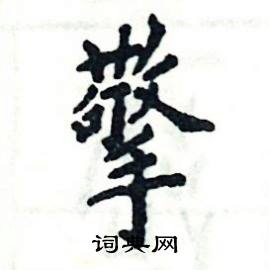 擎
词典网